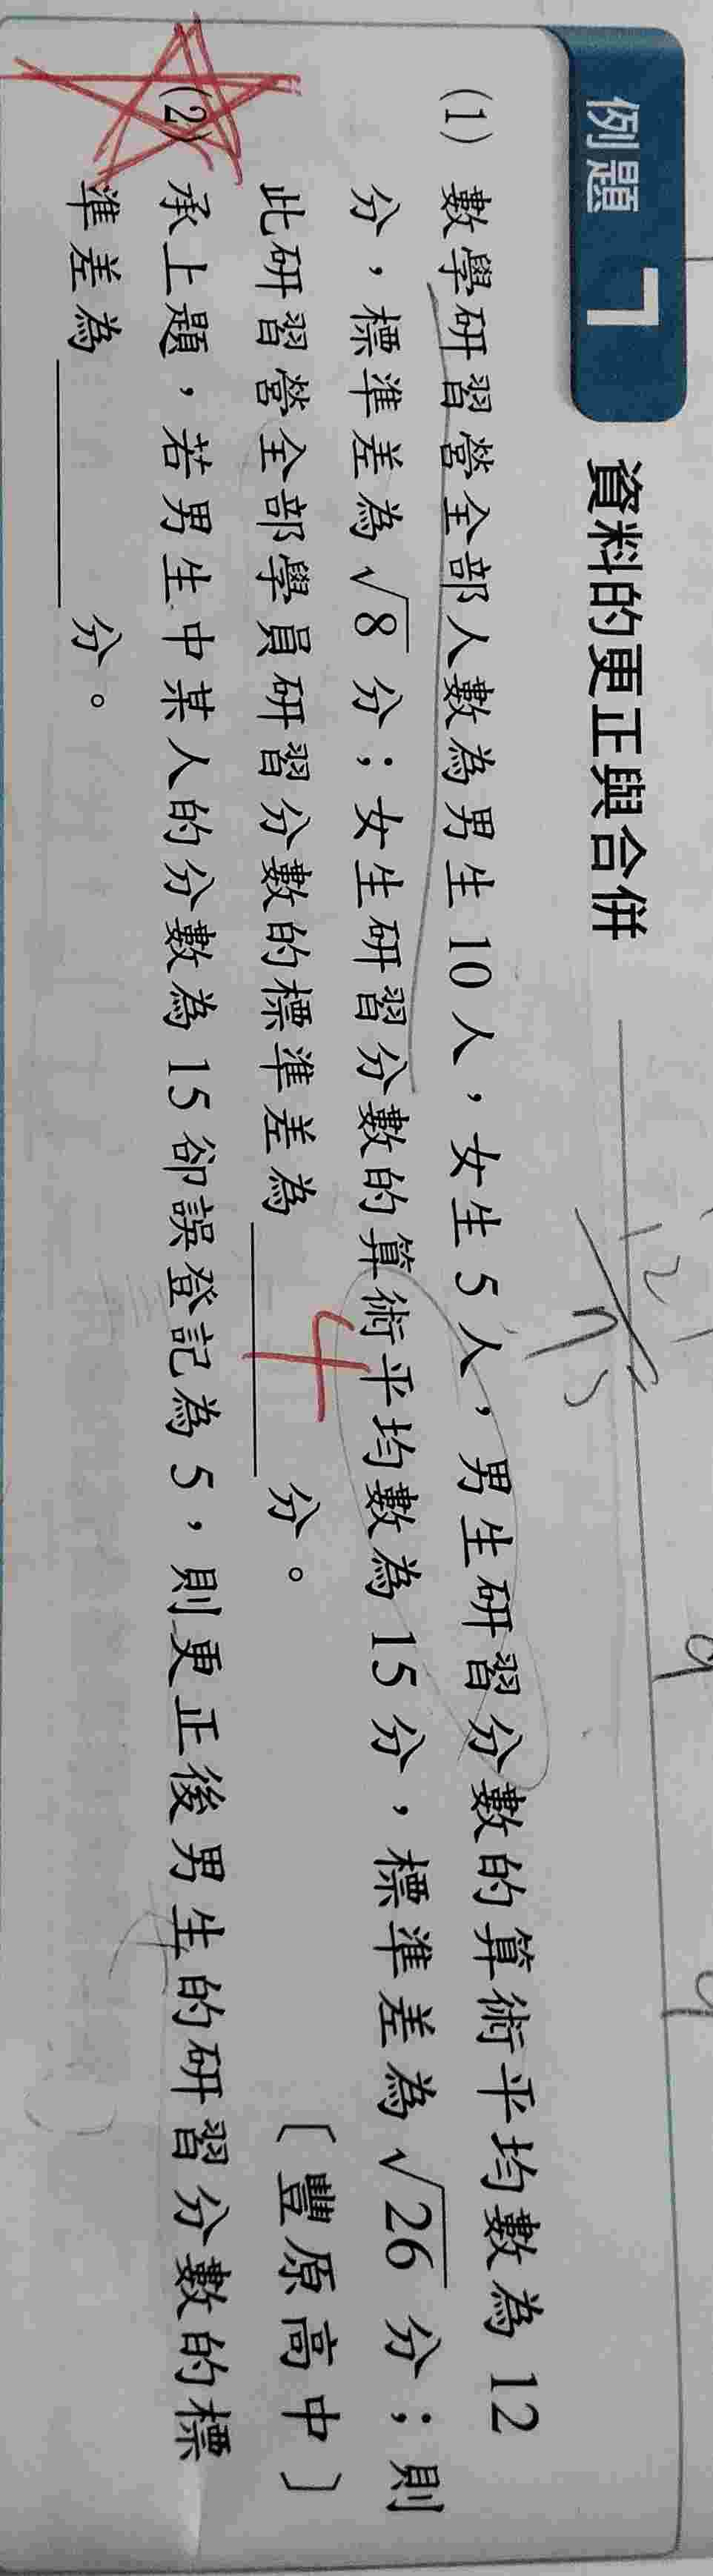 例題 7 資料的更正與合併
(1) 數學研習營全部人數為男生 10 人，女生 5 人，男生研習分數的算術平均數為 12
分，標準差為 √8 分；女生研習分數的算術平均數為 15 分，標準差為 √26 分；則
此研習營全部學員研習分數的標準差為 4 分。 〔豐原高中〕
(2) 承上題，若男生中某人的分數為 15 卻誤登記為 5，則更正後男生的研習分數的標
準差為 ______ 分。